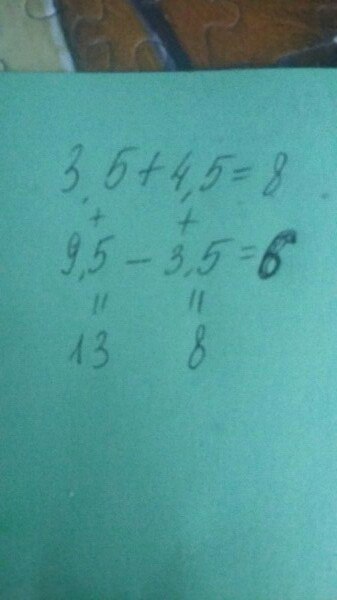 3,5+4,5=8
+ +
9,5-3,5=6
= =
13 8